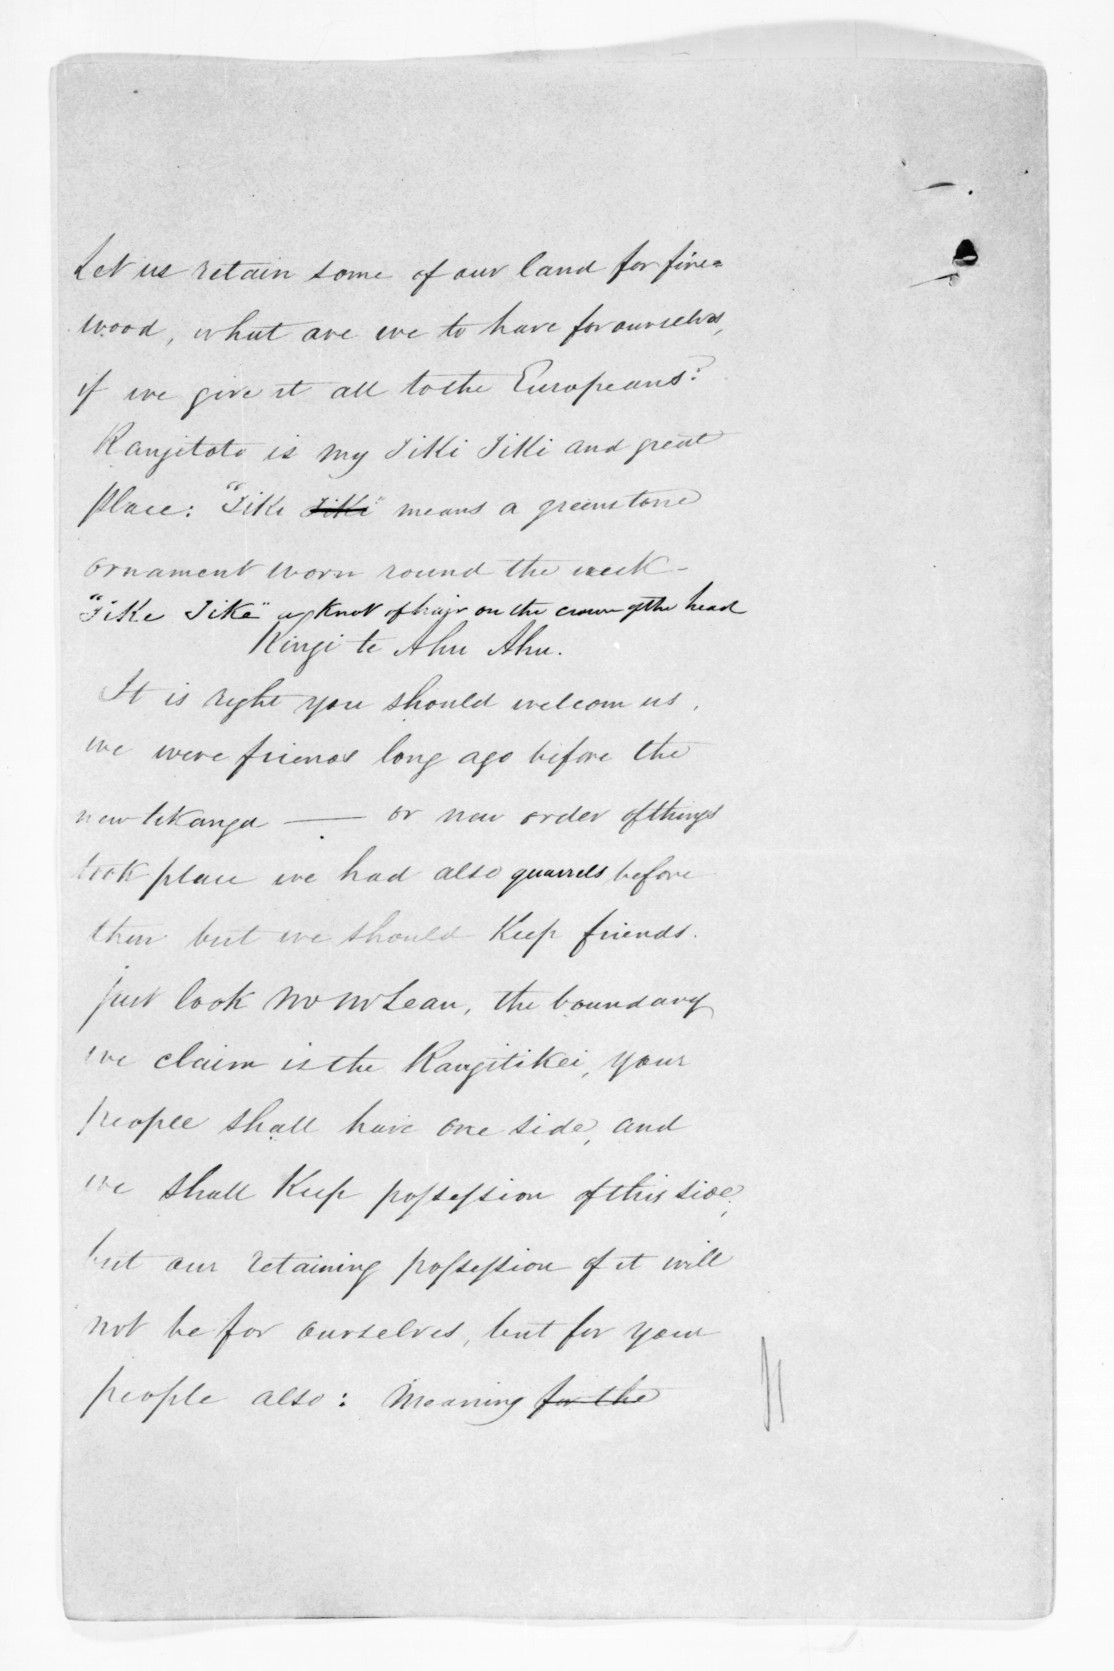 Let us retain some of our land for fire=
wood, what are we to have for ourselves,
if we give it all to the Europeans?
Rangitoto is my Tiki Tiki and great
place: "Tike Tiki" means a greenstone
ornament worn round the neck -
"Tike Tike" a knot of hair on the crown of the head
Kingi te Ahu Ahu.
It is right you should welcom us,
we were friends long ago before the
new tikanga — or new order of things
took place we had also quarrels before
then but we should Keep friends.
just look Mr McLean, the boundary
we claim is the Rangitikei, your
people shall have one side, and
we shall Keep possession of this side,
but our retaining possession of it will
not be for ourselves, but for your
people also: Meaning for the